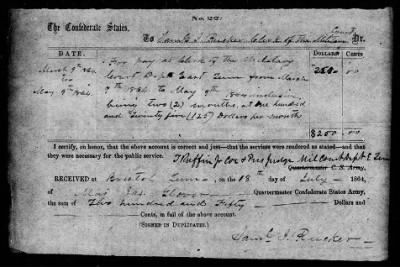 No. 1221.
The Confederate States,
To Saml. J. Rucker Clerk of the Military Court Dr.
DATE. DOLLARS CENTS
March 9th 1864 For pay as Clerk of the Military 250 00
to Court Dept East Tenn from March
May 9th 1864. 9th 1864 to May 9th 1864 inclusive
being two (2) months, at One hundred
and Twenty five (125) Dollars per month
$250 00
I certify, on honor, that the above account is correct and just—that the services were rendered as stated—and that
they were necessary for the public service. T Ruffin Jr Col & Pres Judge Mil Court Dept E. Tenn
Quartermaster C. S. Army,
RECEIVED AT Bristol Tenn, on the 18th day of July 1864,
of Maj Jas. Glover Quartermaster Confederate States Army,
the sum of Two hundred and Fifty Dollars and
Cents, in full of the above account.
(SIGNED IN DUPLICATES.)
Saml. J. Rucker